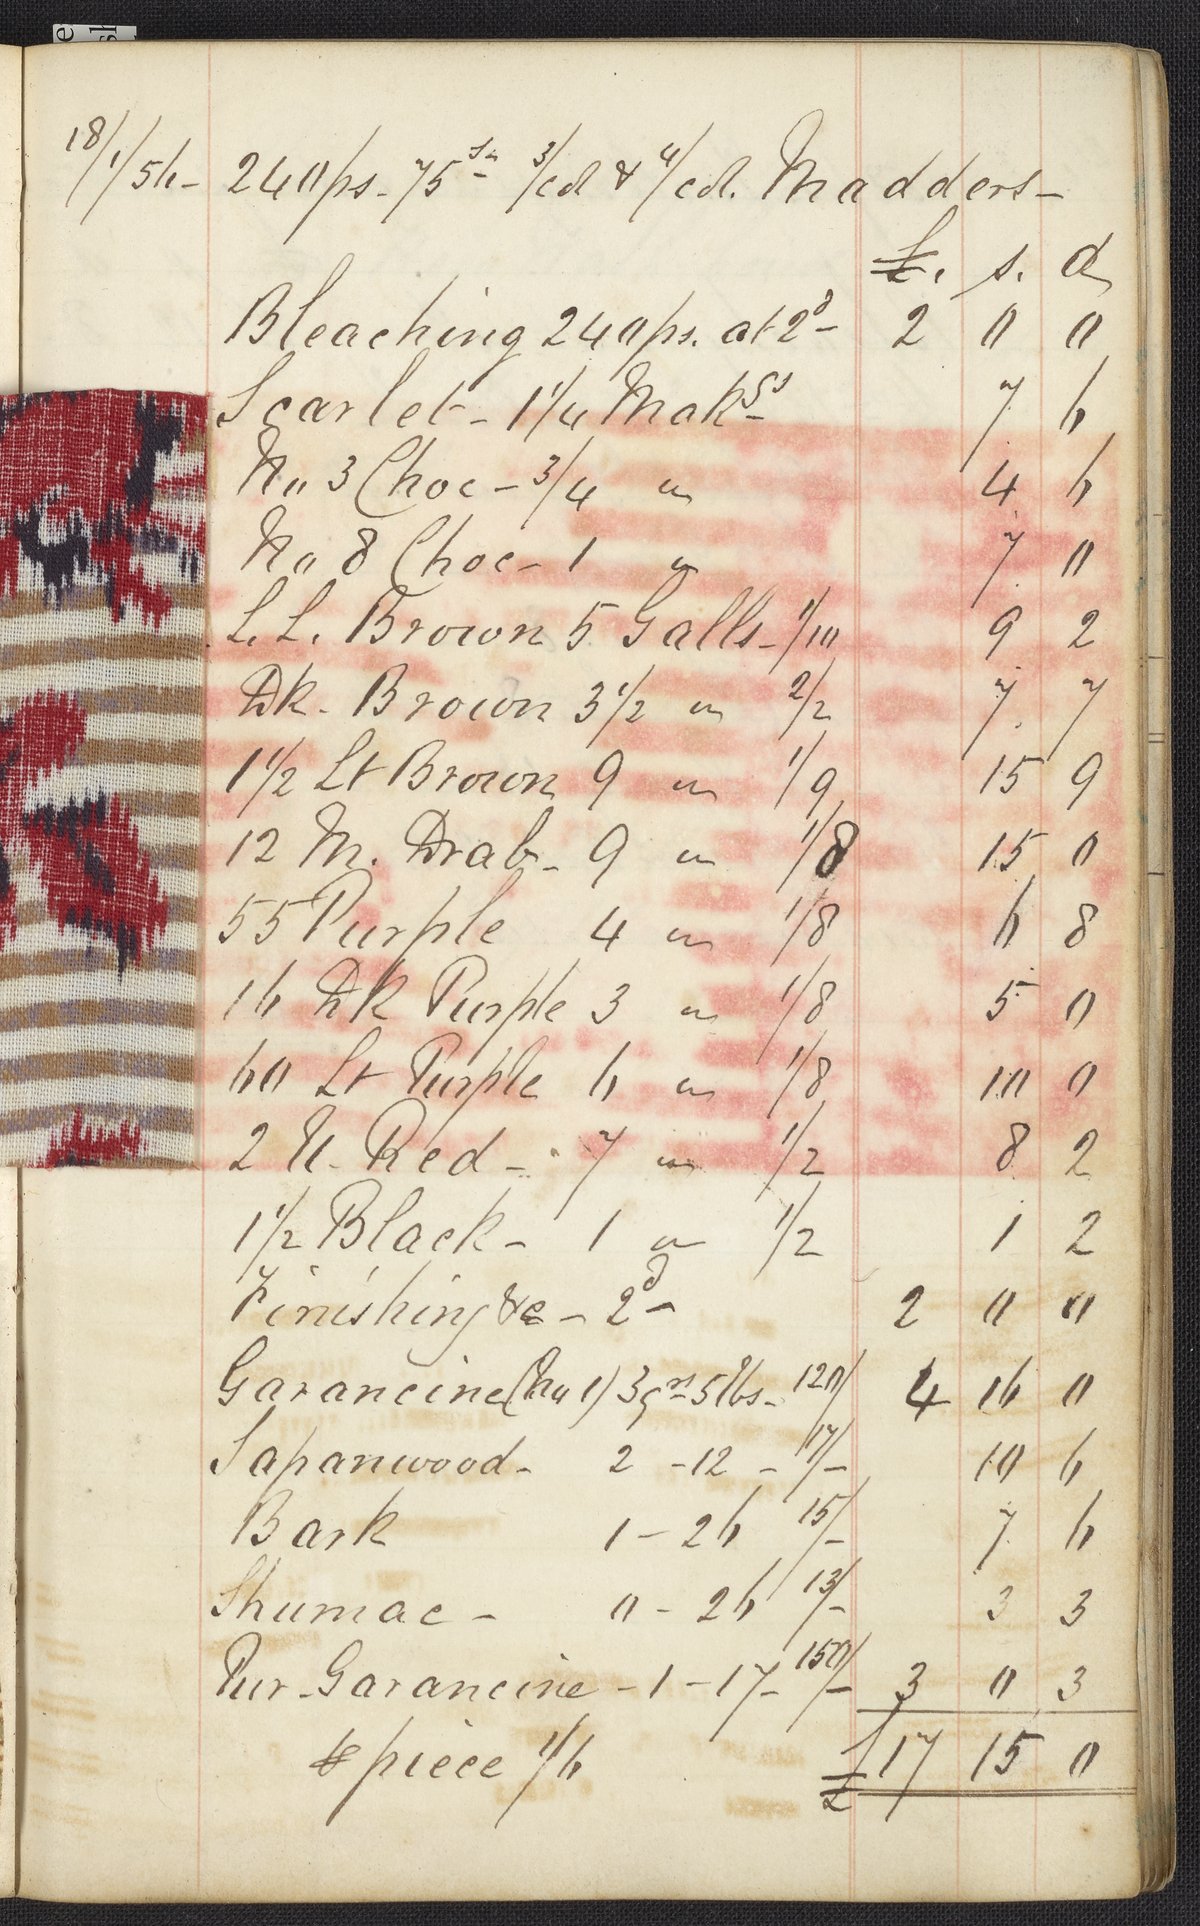 18/1/56- 240ps. 75 3/cd & 4/cd. Madders-
£. s. d
Bleaching 240ps. at 2d- 2 0 0
Scarlet - 1 1/4 7 6
No 3 Choc - 3/4 " 4 6
No 8 Choc - 1 " 7 0
L.L. Brown 5 Galls - 1/10 9 2
Dk. Brown 3 1/2 " 2/2 7 7
1 1/2 Lt Brown 9 " 1/9 15 9
12 M. Drab - 9 " 1/8 15 0
55 Purple 4 " 1/8 6 8
16 Dk Purple 3 " 1/8 5 0
60 Lt Purple 6 " 1/8 10 0
2 U. Red - 7 " 1/2 8 2
1 1/2 Black - 1 " 1/2 1 2
Finishing &c - 2d- 2 0 0
Garancine (No 1) 3qrs 5lbs - 120/ 4 16 0
Sapanwood - 2 - 12 - 17/- 10 6
Bark 1 - 26 15/- 7 6
Shumac - 0 - 26 13/- 3 3
Pur. Garancine - 1 - 17 - 150/- 3 0 3
piece 1/6 £17 15 0